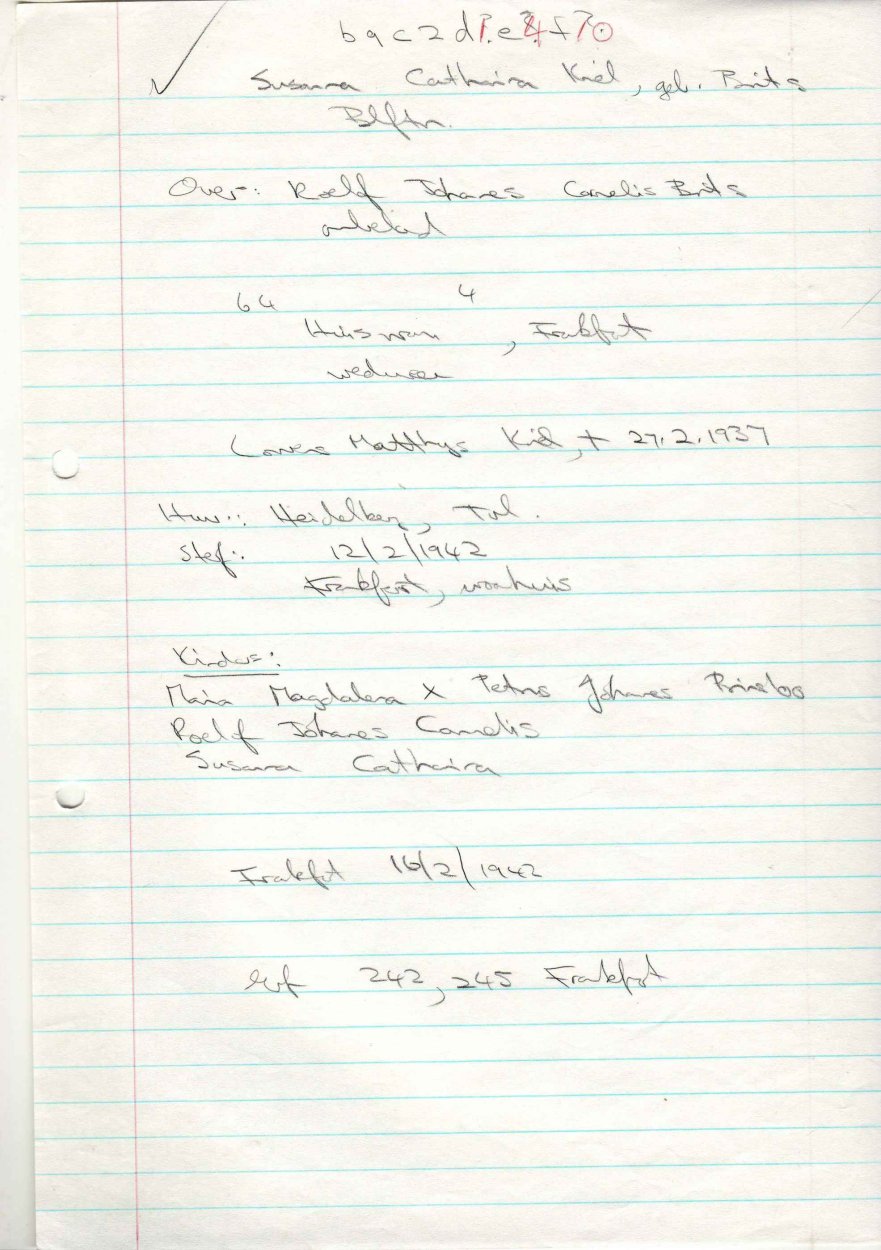 b9c2d?.e?4f?0
Susanna Catharina Kriel, geb. Brits
Blftn.
Over: Roelof Johannes Cornelis Brits
onbekend
64 4
Huisvrou, Frankfort
weduwee
Lourens Matthys Kriel, + 27.2.1937
Huw.: Heidelberg, Tvl.
Sterf.: 12/2/1942
Frankfort, woonhuis
Kinders:
Maria Magdalena x Petrus Johannes Prinsloo
Roelof Johannes Cornelis
Susanna Catharina
Frankfort 16/2/1942
erf 242, 245 Frankfort